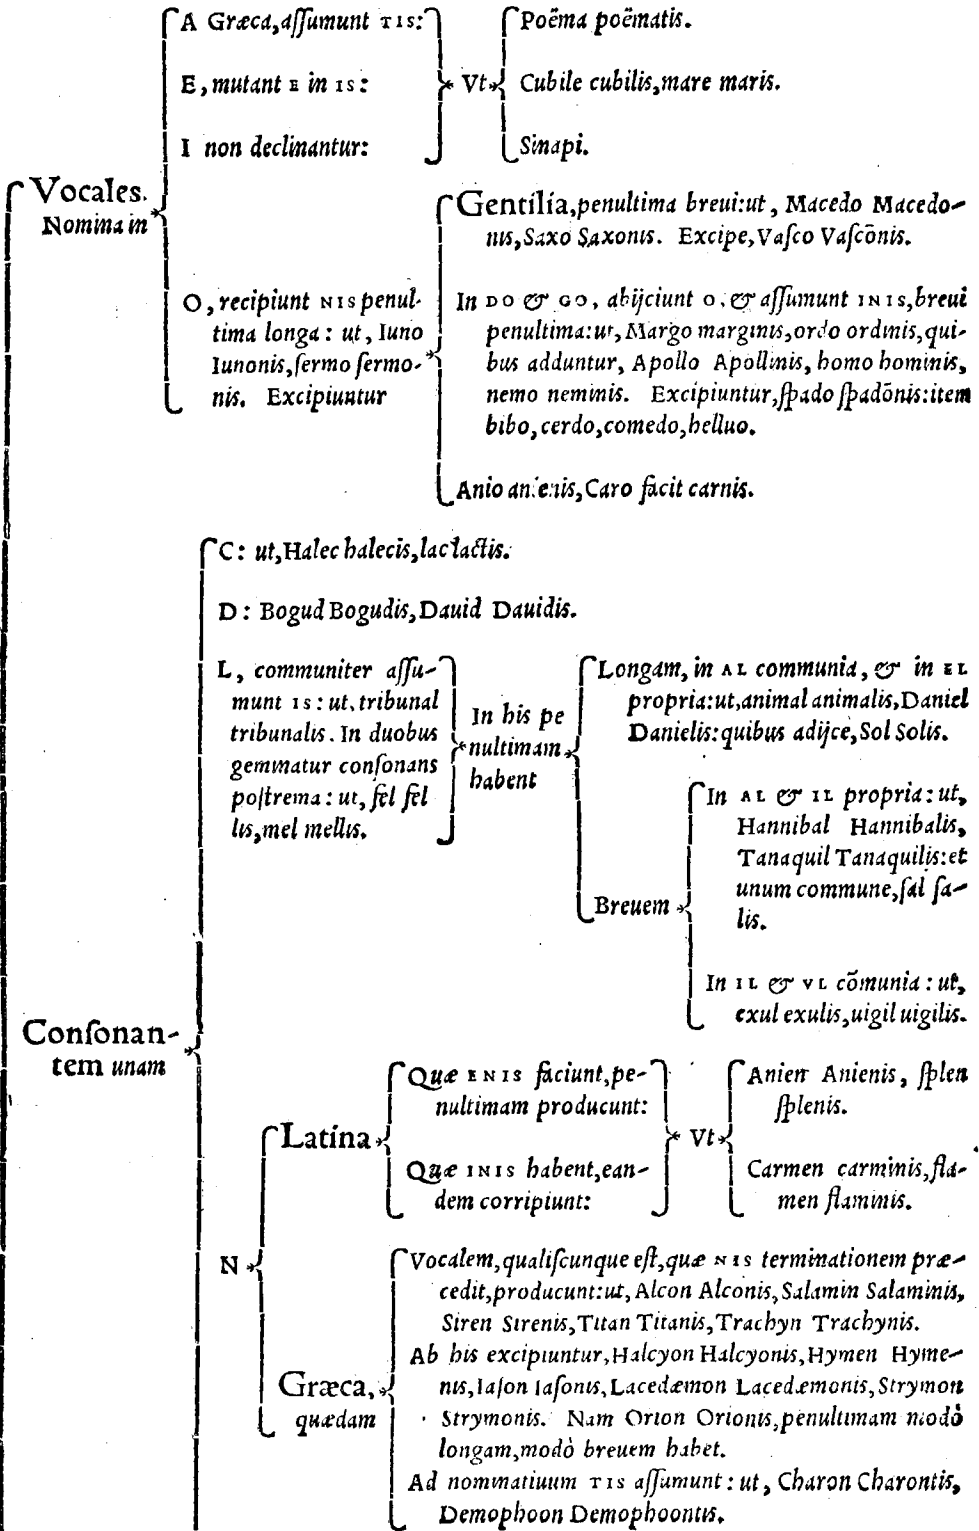 A Græca, aſſumunt TIS:
E, mutant E in IS:
I non declinantur:
Vt
Poëma poëmatis.
Cubile cubilis, mare maris.
Sinapi.
Vocales.
Nomina in
O, recipiunt NIS penul-
tima longa: ut, Iuno
Iunonis, ſermo ſermo-
nis. Excipiuntur
Gentilia, penultima breui: ut, Macedo Macedo-
nis, Saxo Saxonis. Excipe, Vaſco Vaſcōnis.
In DO & GO, abijciunt O, & aſſumunt INIS, breui
penultima: ut, Margo marginis, ordo ordinis, qui-
bus adduntur, Apollo Apollinis, homo hominis,
nemo neminis. Excipiuntur, ſpado ſpadōnis: item
bibo, cerdo, comedo, helluo.
Anio anienis, Caro facit carnis.
Conſonan-
tem unam
C: ut, Halec halecis, lac lactis.
D: Bogud Bogudis, Dauid Dauidis.
L, communiter aſſu-
munt IS: ut, tribunal
tribunalis. In duobus
gemmatur conſonans
poſtrema: ut, fel fel
lis, mel mellis.
In his pe
nultimam
habent
Longam, in AL communia, & in EL
propria: ut, animal animalis, Daniel
Danielis: quibus adijce, Sol Solis.
Breuem
In AL & IL propria: ut,
Hannibal Hannibalis,
Tanaquil Tanaquilis: et
unum commune, ſal ſa-
lis.
In IL & VL cōmunia: ut,
exul exulis, uigil uigilis.
N
Latina
Quæ ENIS faciunt, pe-
nultimam producunt:
Quæ INIS habent, ean-
dem corripiunt:
Vt
Anien Anienis, ſplen
ſplenis.
Carmen carminis, fla-
men flaminis.
Græca,
quædam
Vocalem, qualiſcunque eſt, quæ NIS terminationem præ-
cedit, producunt: ut, Alcon Alconis, Salamin Salaminis,
Siren Sirenis, Titan Titanis, Trachyn Trachynis.
Ab his excipiuntur, Halcyon Halcyonis, Hymen Hyme-
nis, Iaſon Iaſonis, Lacedæmon Lacedæmonis, Strymon
Strymonis. Nam Orion Orionis, penultimam modò
longam, modò breuem habet.
Ad nominatiuum TIS aſſumunt: ut, Charon Charontis,
Demophoon Demophoontis.